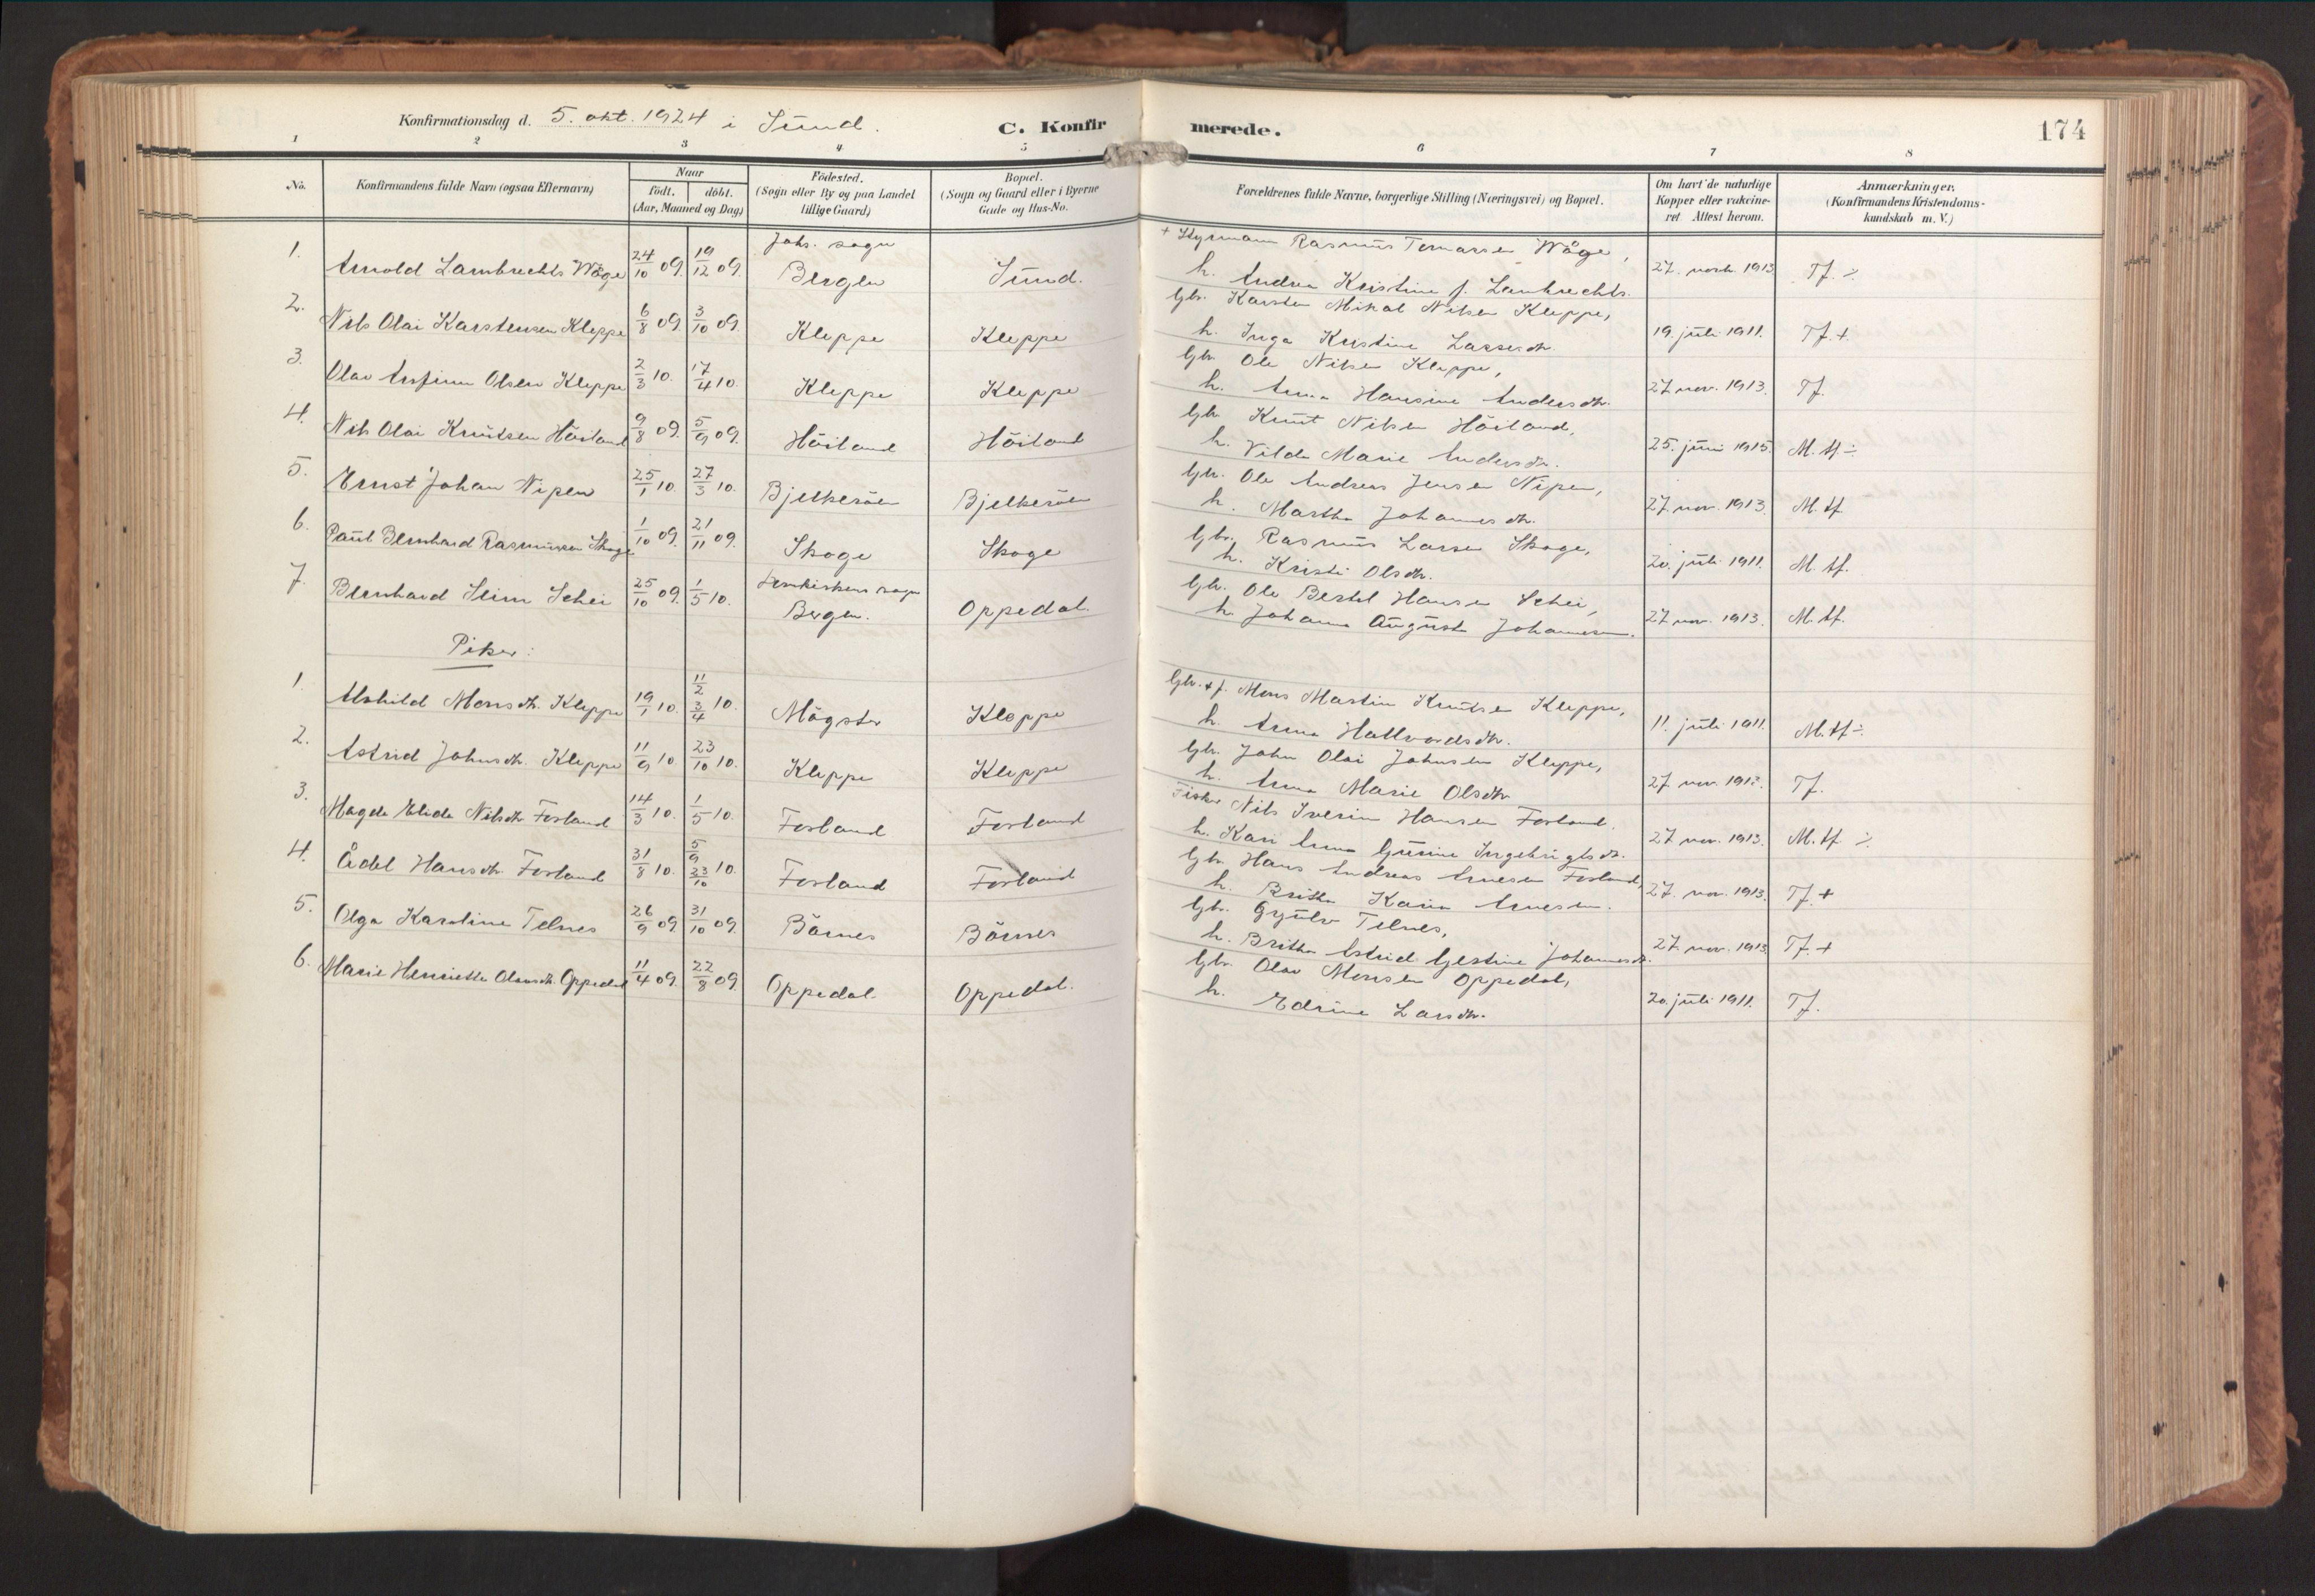 Konfirmationsdag d. 5. okt. 1924 i Sund.
C. Konfirmerede.
174
1 2 3 4 5 6 7 8
No.
Konfirmandens fulde Navn (ogsaa Efternavn)
Naar
født. døbt.
(Aar, Maaned og Dag)
Fødested.
(Sogn eller By og paa Landet
tillige Gaard)
Bopæl.
(Sogn og Gaard eller i Byerne
Gade og Hus-No.
Forældrenes fulde Navne, borgerlige Stilling (Næringsvei) og Bopæl.
Om havt de naturlige
Kopper eller vakcine-
ret Attest herom.
Anmærkninger.
(Konfirmandens Kristendoms-
kundskab m. V.)
1. Arnold Lambrechts Wåge 24/10 09. 19/12 09. Johs. sogn Bergen Sund. + Styrmann Rasmus Tomassen Wåge,
h. Andrea Kristine f. Lambrechts. 27. novb. 1913. Tf. ÷
2. Nils Olai Karstensen Kleppe 6/8 09. 3/10 09. Kleppe Kleppe Gbr. Karsten Mikal Nilsen Kleppe,
h. Inga Kristine Lassesdtr. 19. juli 1911. Tf. +
3. Olav Arfinn Olsen Kleppe 2/3 10. 17/4 10. Kleppe Kleppe Gbr. Ole Nilsen Kleppe,
h. Anna Hansine Andersdtr. 27 nov. 1913. Tf.
4. Nils Olai Knutsen Höiland 9/8 09. 5/9 09. Höiland Höiland Gbr. Knut Nilsen Höiland,
h. Vilda Marie Andersdtr. 25. juni 1915. M. tf ÷
5. Ernst Johan Nipen 25/1 10. 27/3 10. Bjelkeröen Bjelkeröen Gbr. Ole Andreas Jensen Nipen,
h. Martha Johannesdtr. 27. nov. 1913. M. tf.
6. Paul Bernhard Rasmussen Skoge 1/10 09. 21/11 09. Skoge Skoge Gbr. Rasmus Larsen Skoge,
h. Kristi Olsdtr. 20. juli 1911. M. tf.
7. Bernhard Seim Schei 25/10 09. 1/5 10. Domkirkens sogn Bergen. Oppedal. Gbr. Ole Bertel Hansen Schei,
h. Johanna Augusta Johannesen. 27 nov. 1913. M. tf.
Piker:
1. Alvhild Monsdtr. Kleppe 19/1 10. 11/2 3/4 10. Mögster Kleppe Gbr. + f. Mons Martin Knutsen Kleppe,
h. Anna Hallvardsdtr. 11. juli 1911. M. tf ÷.
2. Astrid Johnsdtr. Kleppe 11/9 10 23/10 10. Kleppe Kleppe Gbr. John Olai Johnsen Kleppe,
h. Anna Marie Olsdtr 27 nov. 1913. Tf.
3. Magda Elida Nilsdtr Forland 14/3 10. 1/5 10. Forland Forland Fisker Nils Iverin Hansen Forland.
h. Kari Anna Gurine Ingebrigtsdtr. 27 nov. 1913. M. tf. ÷
4. Ådel Hansdtr. Forland 31/8 10. 5/9 23/10 10. Forland Forland Gbr. Hans Andreas Arnesen Forland,
h. Britha Karia Arnesen. 27. nov. 1913. Tf. +
5. Olga Karoline Telnes 26/9 09 31/10 09. Börnes Börnes Gbr. Gjulv Telnes,
h. Britha Astrid Gjertine Johannesdtr. 27. nov. 1913 Tf. +
6. Marie Henriette Olavsdtr. Oppedal 11/4 09. 22/8 09. Oppedal. Oppedal. Gbr. Olav Monsen Oppedal,
h. Edrine Larsdtr. 20. juli 1911. Tf.